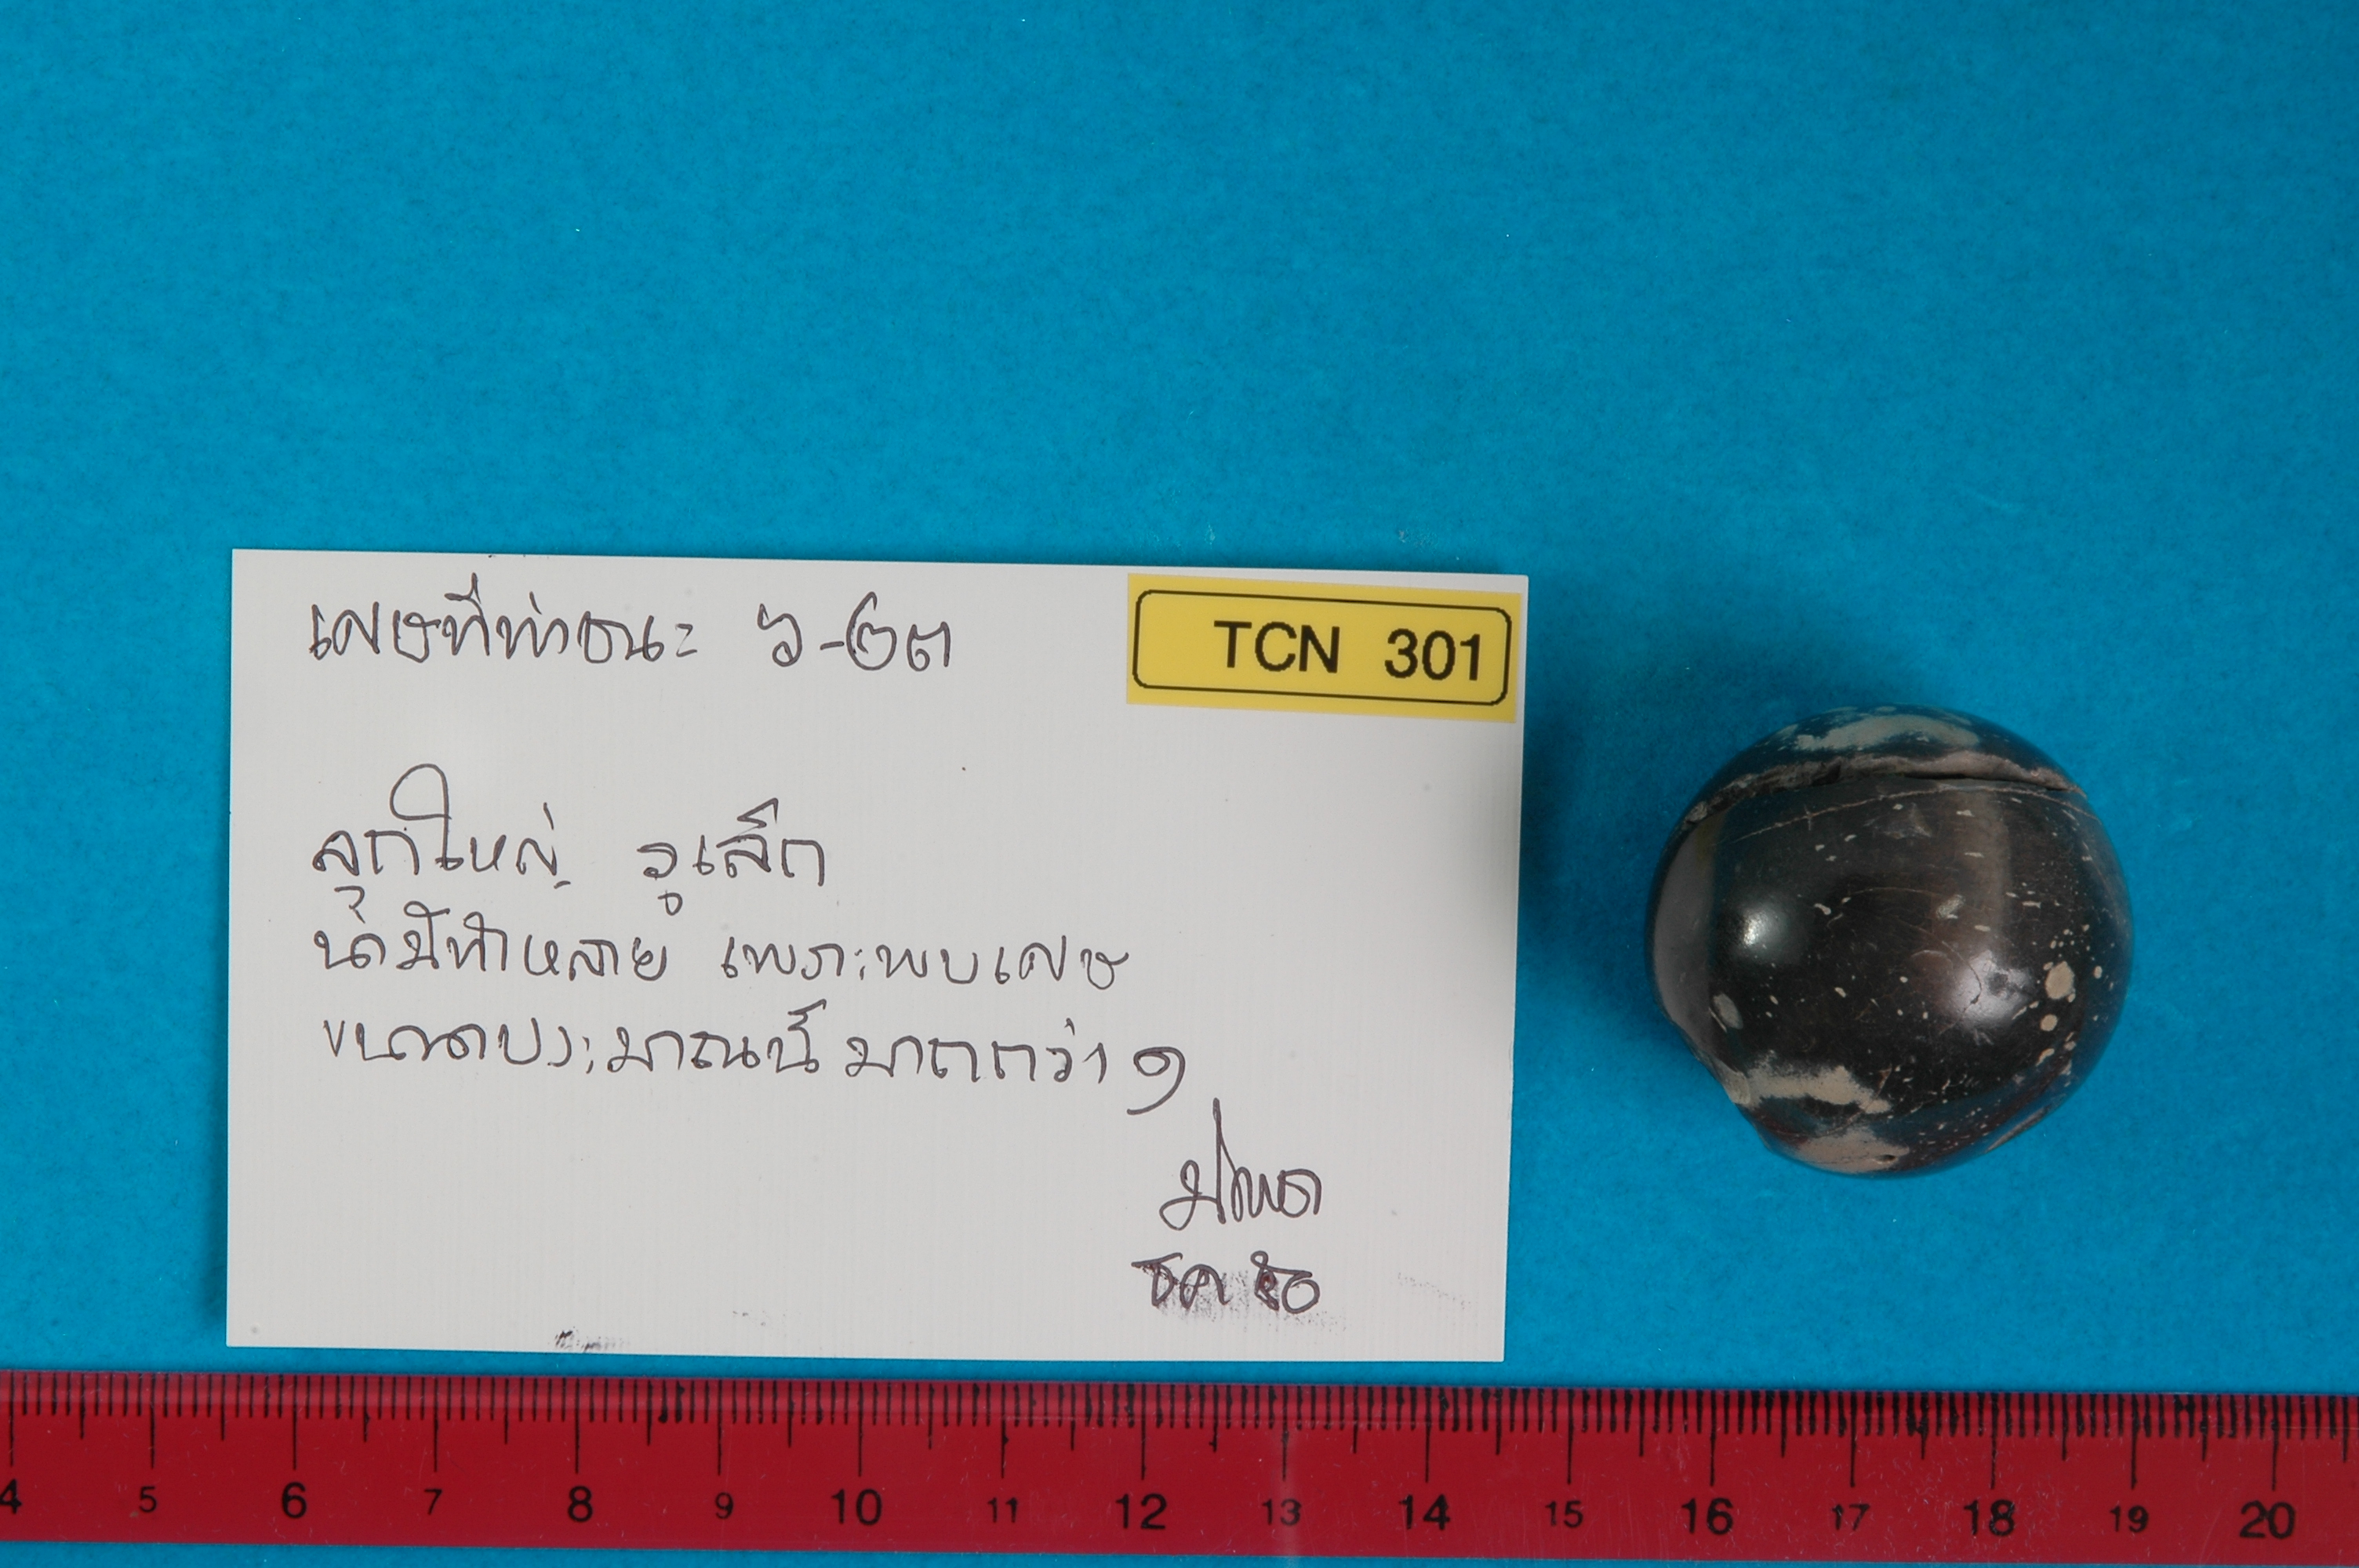 เศษที่ท่าชนะ ๖-๒๓
TCN 301
ลูกใหญ่ รูเล็ก
น่ามีทำหลาย เพราะพบเศษ
ขนาดประมาณนี้ มากกว่า ๑
ธค ๕๐
4 5 6 7 8 9 10 11 12 13 14 15 16 17 18 19 20